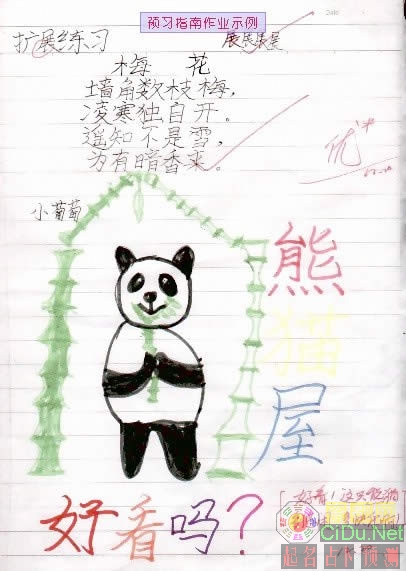 预习指南作业示例
扩展练习
展展展展
梅 花
墙角数枝梅，
凌寒独自开。
遥知不是雪，
为有暗香来。
优
小葡萄
熊
猫
屋
好看吗？
好看！这只熊猫
CiDu.Net
起名占卜预测